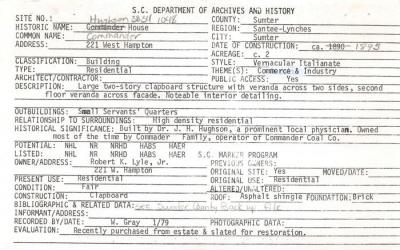 S.C. DEPARTMENT OF ARCHIVES AND HISTORY
SITE NO.: 1048 COUNTY: Sumter
HISTORIC NAME: Hughson Commander House REGION: Santee-Lynches
COMMON NAME: Commander CITY: Sumter
ADDRESS: 221 West Hampton DATE OF CONSTRUCTION: ca. 1890 1895
ACREAGE: c. 2
CLASSIFICATION: Building STYLE: Vernacular Italianate
TYPE: Residential THEME(S): Commerce & Industry
ARCHITECT/CONTRACTOR: PUBLIC ACCESS: Yes
DESCRIPTION: Large two-story clapboard structure with veranda across two sides, second
floor veranda across facade. Noteable interior detailing.
OUTBUILDINGS: Small Servants' Quarters
RELATIONSHIP TO SURROUNDINGS: High density residential
HISTORICAL SIGNIFICANCE: Built by Dr. J. H. Hughson, a prominent local physician. Owned
most of the time by Commader Family, operator of Commander Coal Co.
POTENTIAL: NHL NR NRHD HABS HAER
LISTED: NHL NR NRHD HABS HAER S.C. MARKER PROGRAM
OWNER/ADDRESS: Robert K. Lyle, Jr. PREVIOUS OWNERS:
221 W. Hampton ORIGINAL SITE: Yes MOVED/DATE:
PRESENT USE: Residential ORIGINAL USE: Residential
CONDITION: Fair ALTERED/UNALTERED:
CONSTRUCTION: Clapboard ROOF: Asphalt shingle FOUNDATION: Brick
BIBLIOGRAPHIC & RELATED DATA: see Sumter County Back up File
INFORMANT/ADDRESS:
RECORDED BY/DATE: W. Gray 1/79 PHOTOGRAPHIC DATA:
EVALUATION: Recently purchased from estate & slated for restoration.